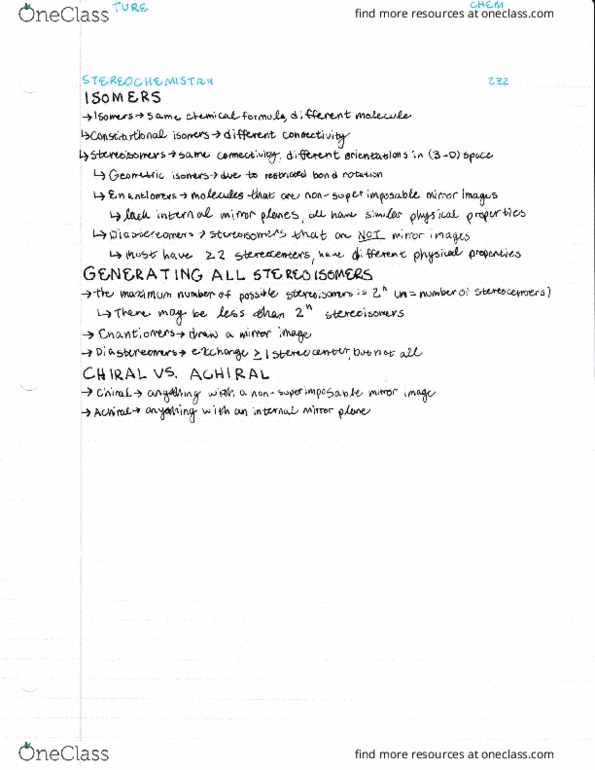 OneClass
TURE
CHEM
find more resources at oneclass.com
STEREOCHEMISTRY 232
ISOMERS
→ Isomers → same chemical formula, different molecule
↳ Constitutional isomers → different connectivity
↳ Stereoisomers → same connectivity, different orientations in (3-D) space
↳ Geometric isomers → due to restricted bond rotation
↳ Enantiomers → molecules that are non-superimposable mirror images
↳ lack internal mirror planes, all have similar physical properties
↳ Diastereomers → stereoisomers that are NOT mirror images
↳ Must have ≥2 stereocenters, have different physical properties
GENERATING ALL STEREOISOMERS
→ The maximum number of possible stereoisomers is 2ⁿ (n = number of stereocenters)
↳ There may be less than 2ⁿ stereoisomers
→ Enantiomers → draw a mirror image
→ Diastereomers → exchange ≥1 stereocenter, but not all
CHIRAL VS. ACHIRAL
→ Chiral → anything with a non-superimposable mirror image
→ Achiral → anything with an internal mirror plane
OneClass
find more resources at oneclass.com